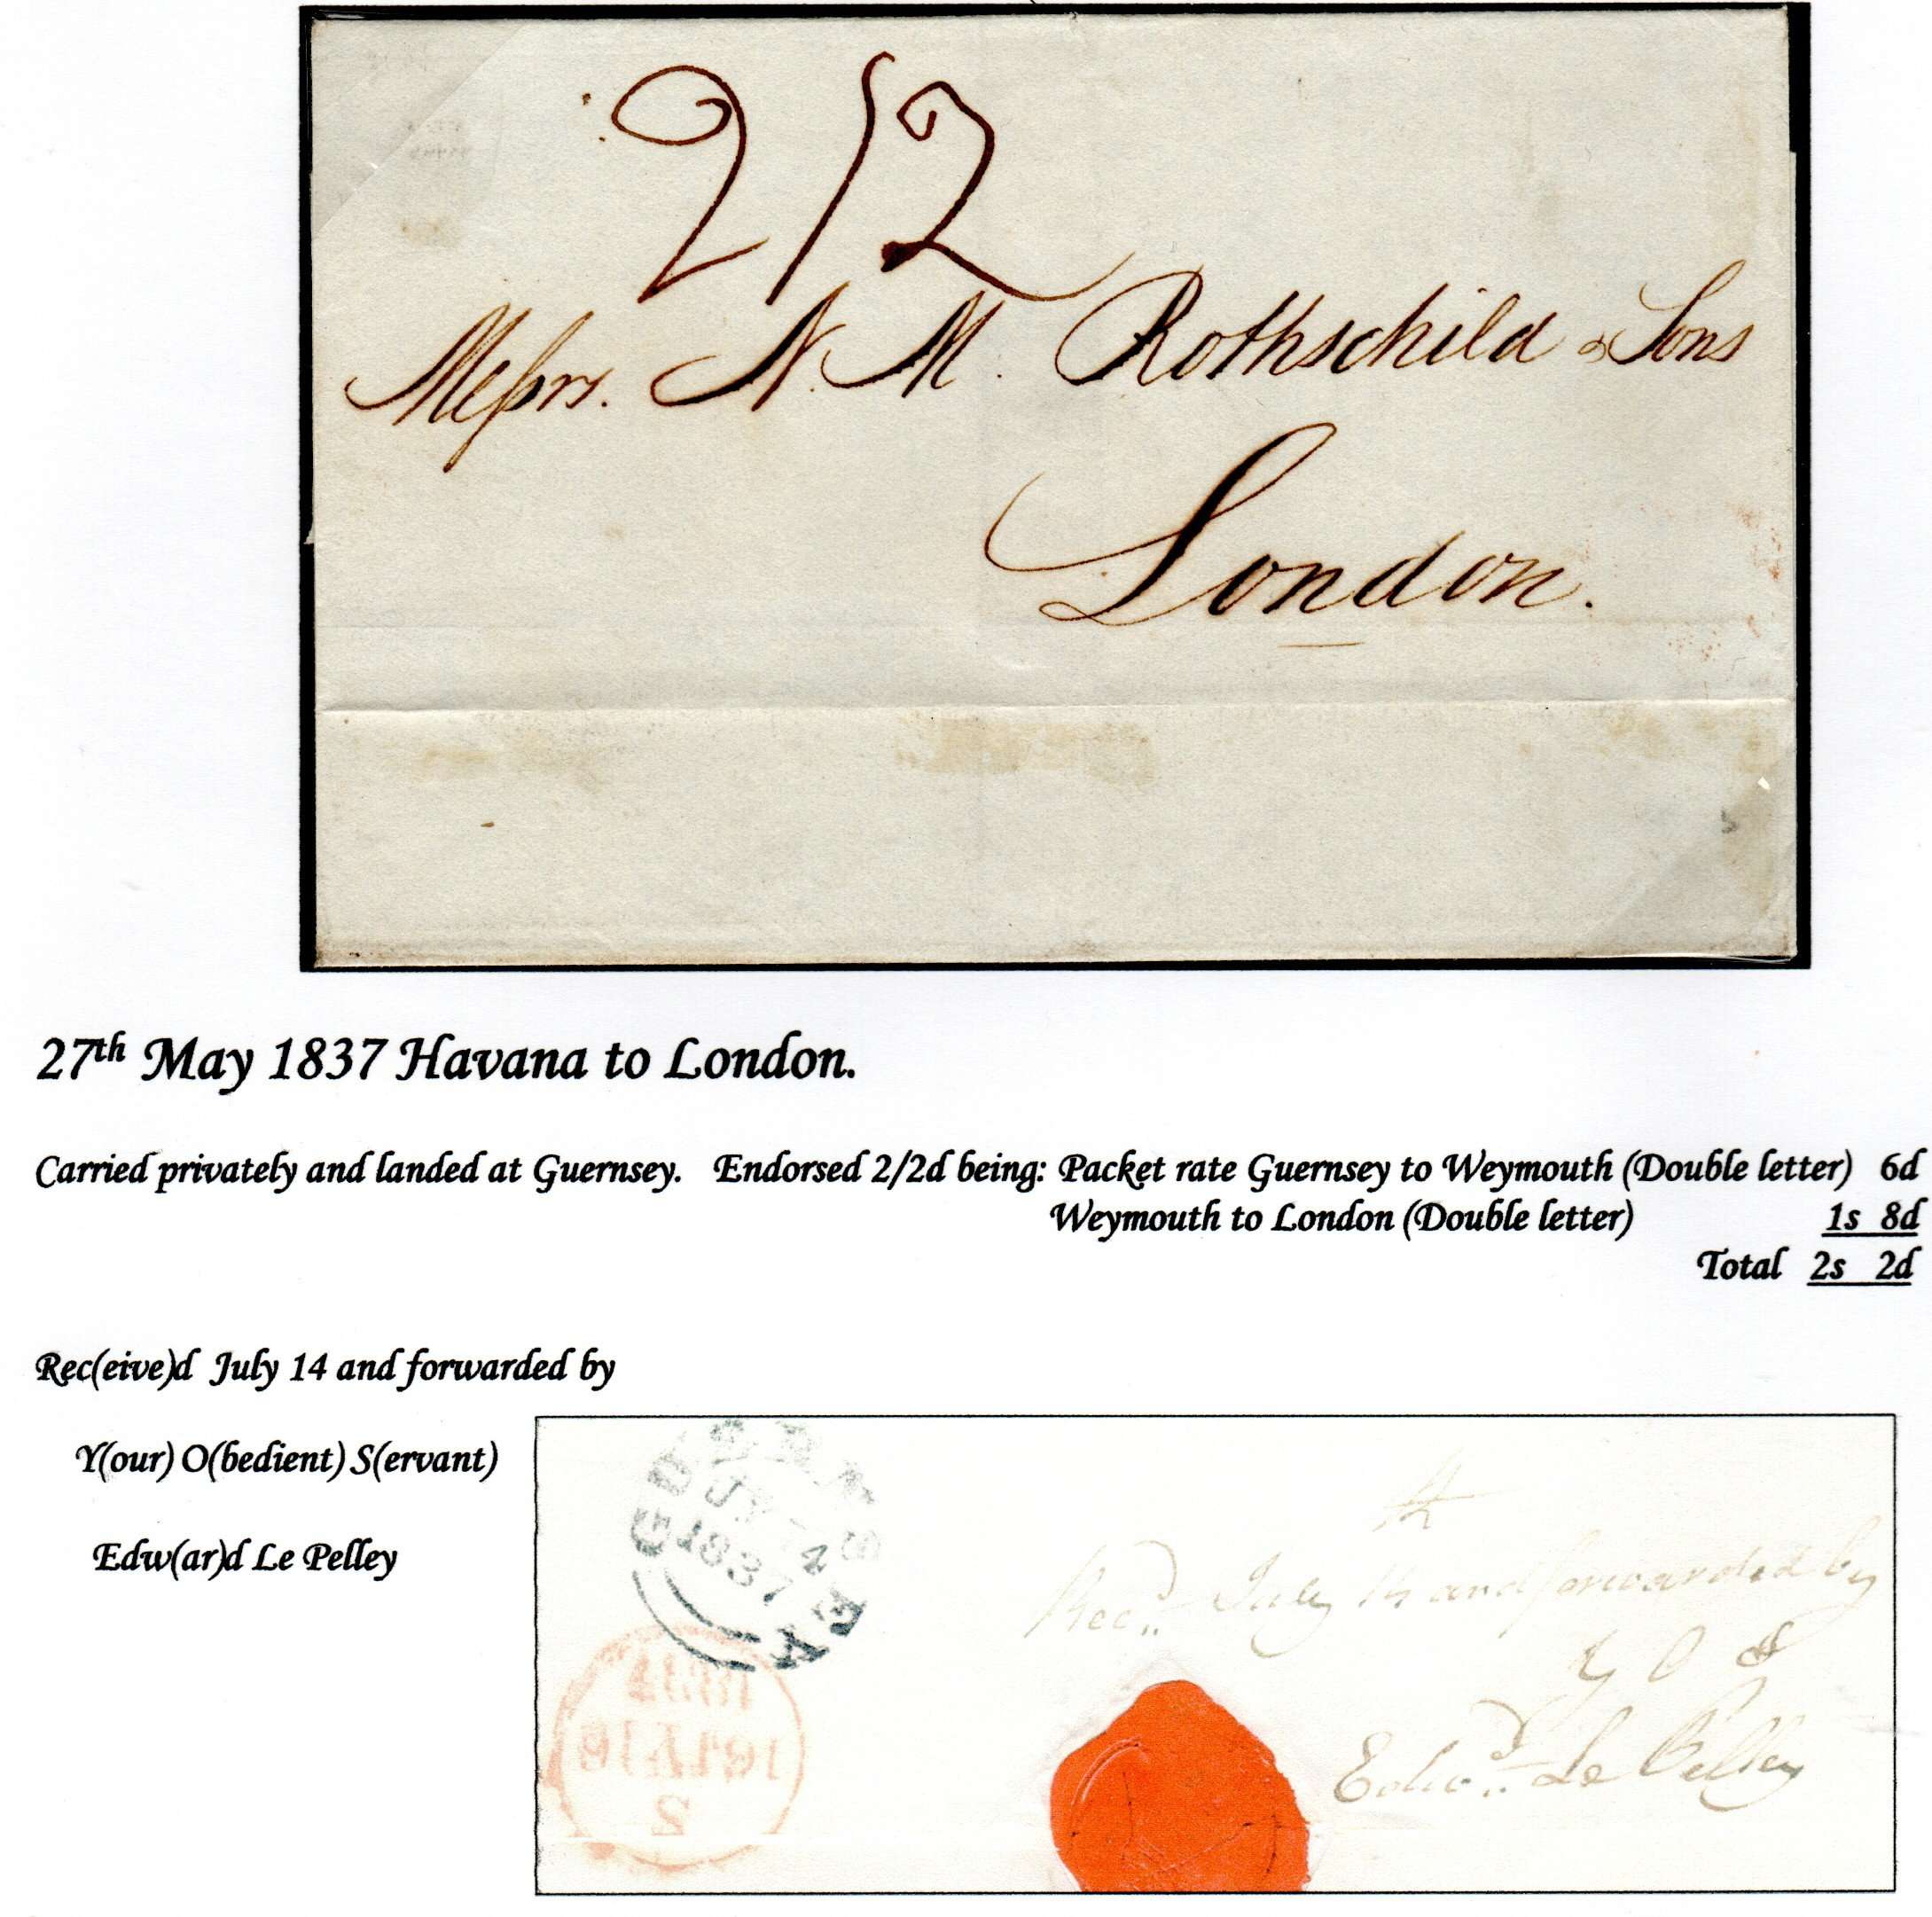 2/2
Messrs. N. M. Rothschild & Sons
London.
27th May 1837 Havana to London.
Carried privately and landed at Guernsey. Endorsed 2/2d being: Packet rate Guernsey to Weymouth (Double letter) 6d
Weymouth to London (Double letter) 1s 8d
Total 2s 2d
Rec(eive)d July 14 and forwarded by
Y(our) O(bedient) S(ervant)
Edw(ar)d Le Pelley
GUERNSEY
JY 14
1837
Recd. July 14 and forwarded by
Y O S
Edwd. Le Pelley
2